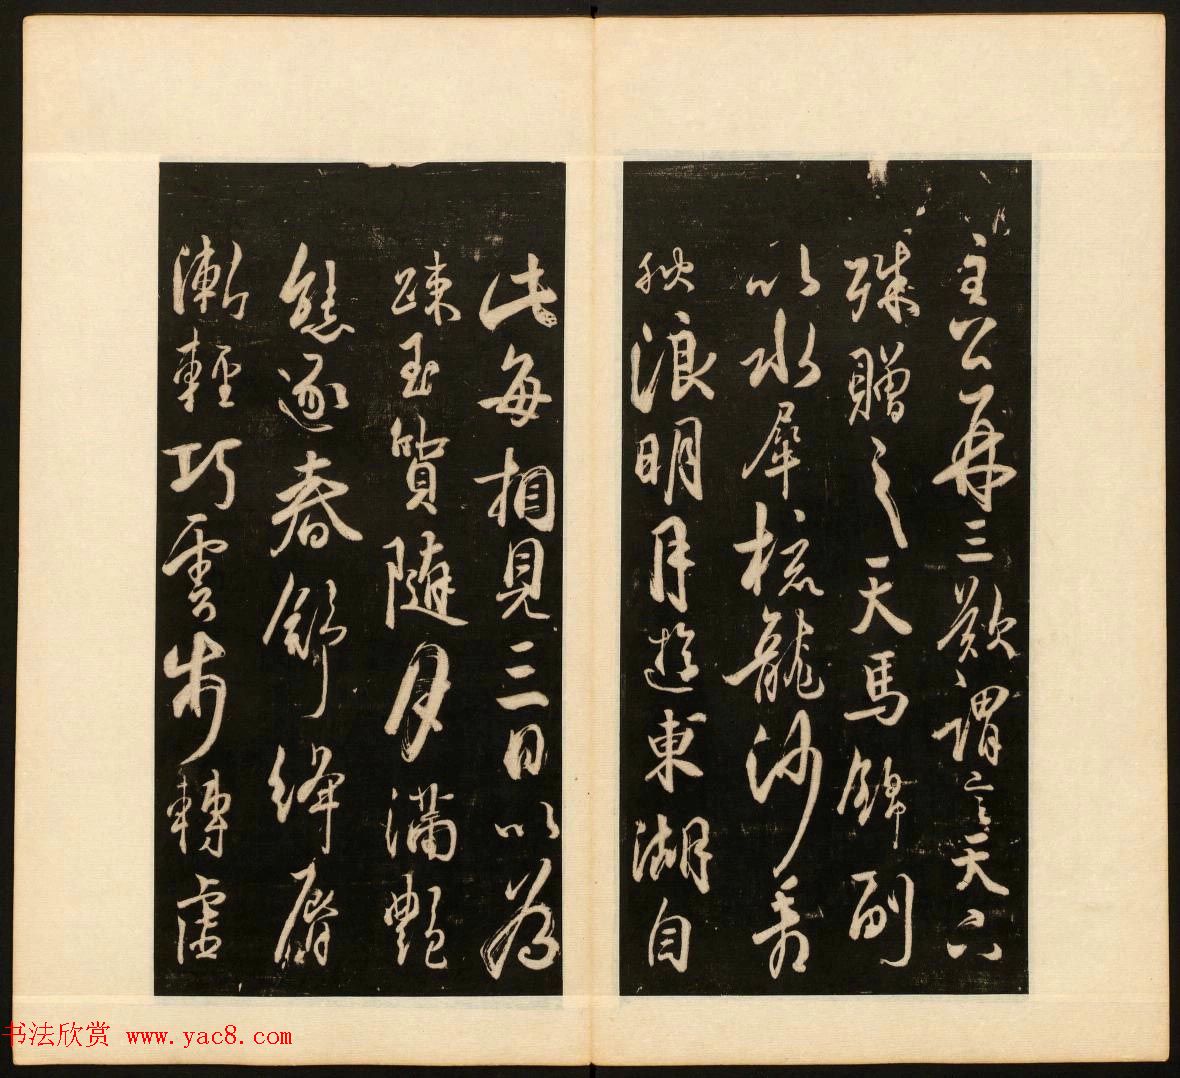 主公再三歎謂言天下
殊贈之天馬錦副
以水犀梳龍沙看
秋浪明月遊東湖自
此每相見三日以為
疎玉質隨月滿艷
態逐春舒絳脣
漸輕巧雲步轉虛
书法欣赏 www.yac8.com